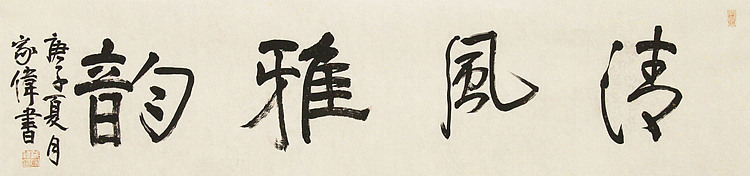 清風雅韵
庚子夏月
家偉書